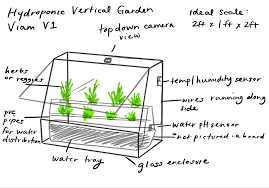 Hydroponic Vertical Garden
Viam V1
top down camera
view
ideal scale:
2ft x 1ft x 2ft
herbs
or veggies
temp/humidity sensor
wires running along
side
pvc
pipes
for water
distribution
water ph sensor
*not pictured - a board
water tray
glass enclosure